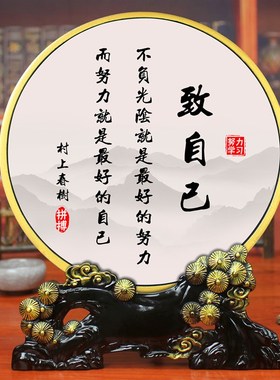 致自己
努力
学习
不负光陰就是最好的努力
而努力就是最好的自己
村上春樹
拼搏